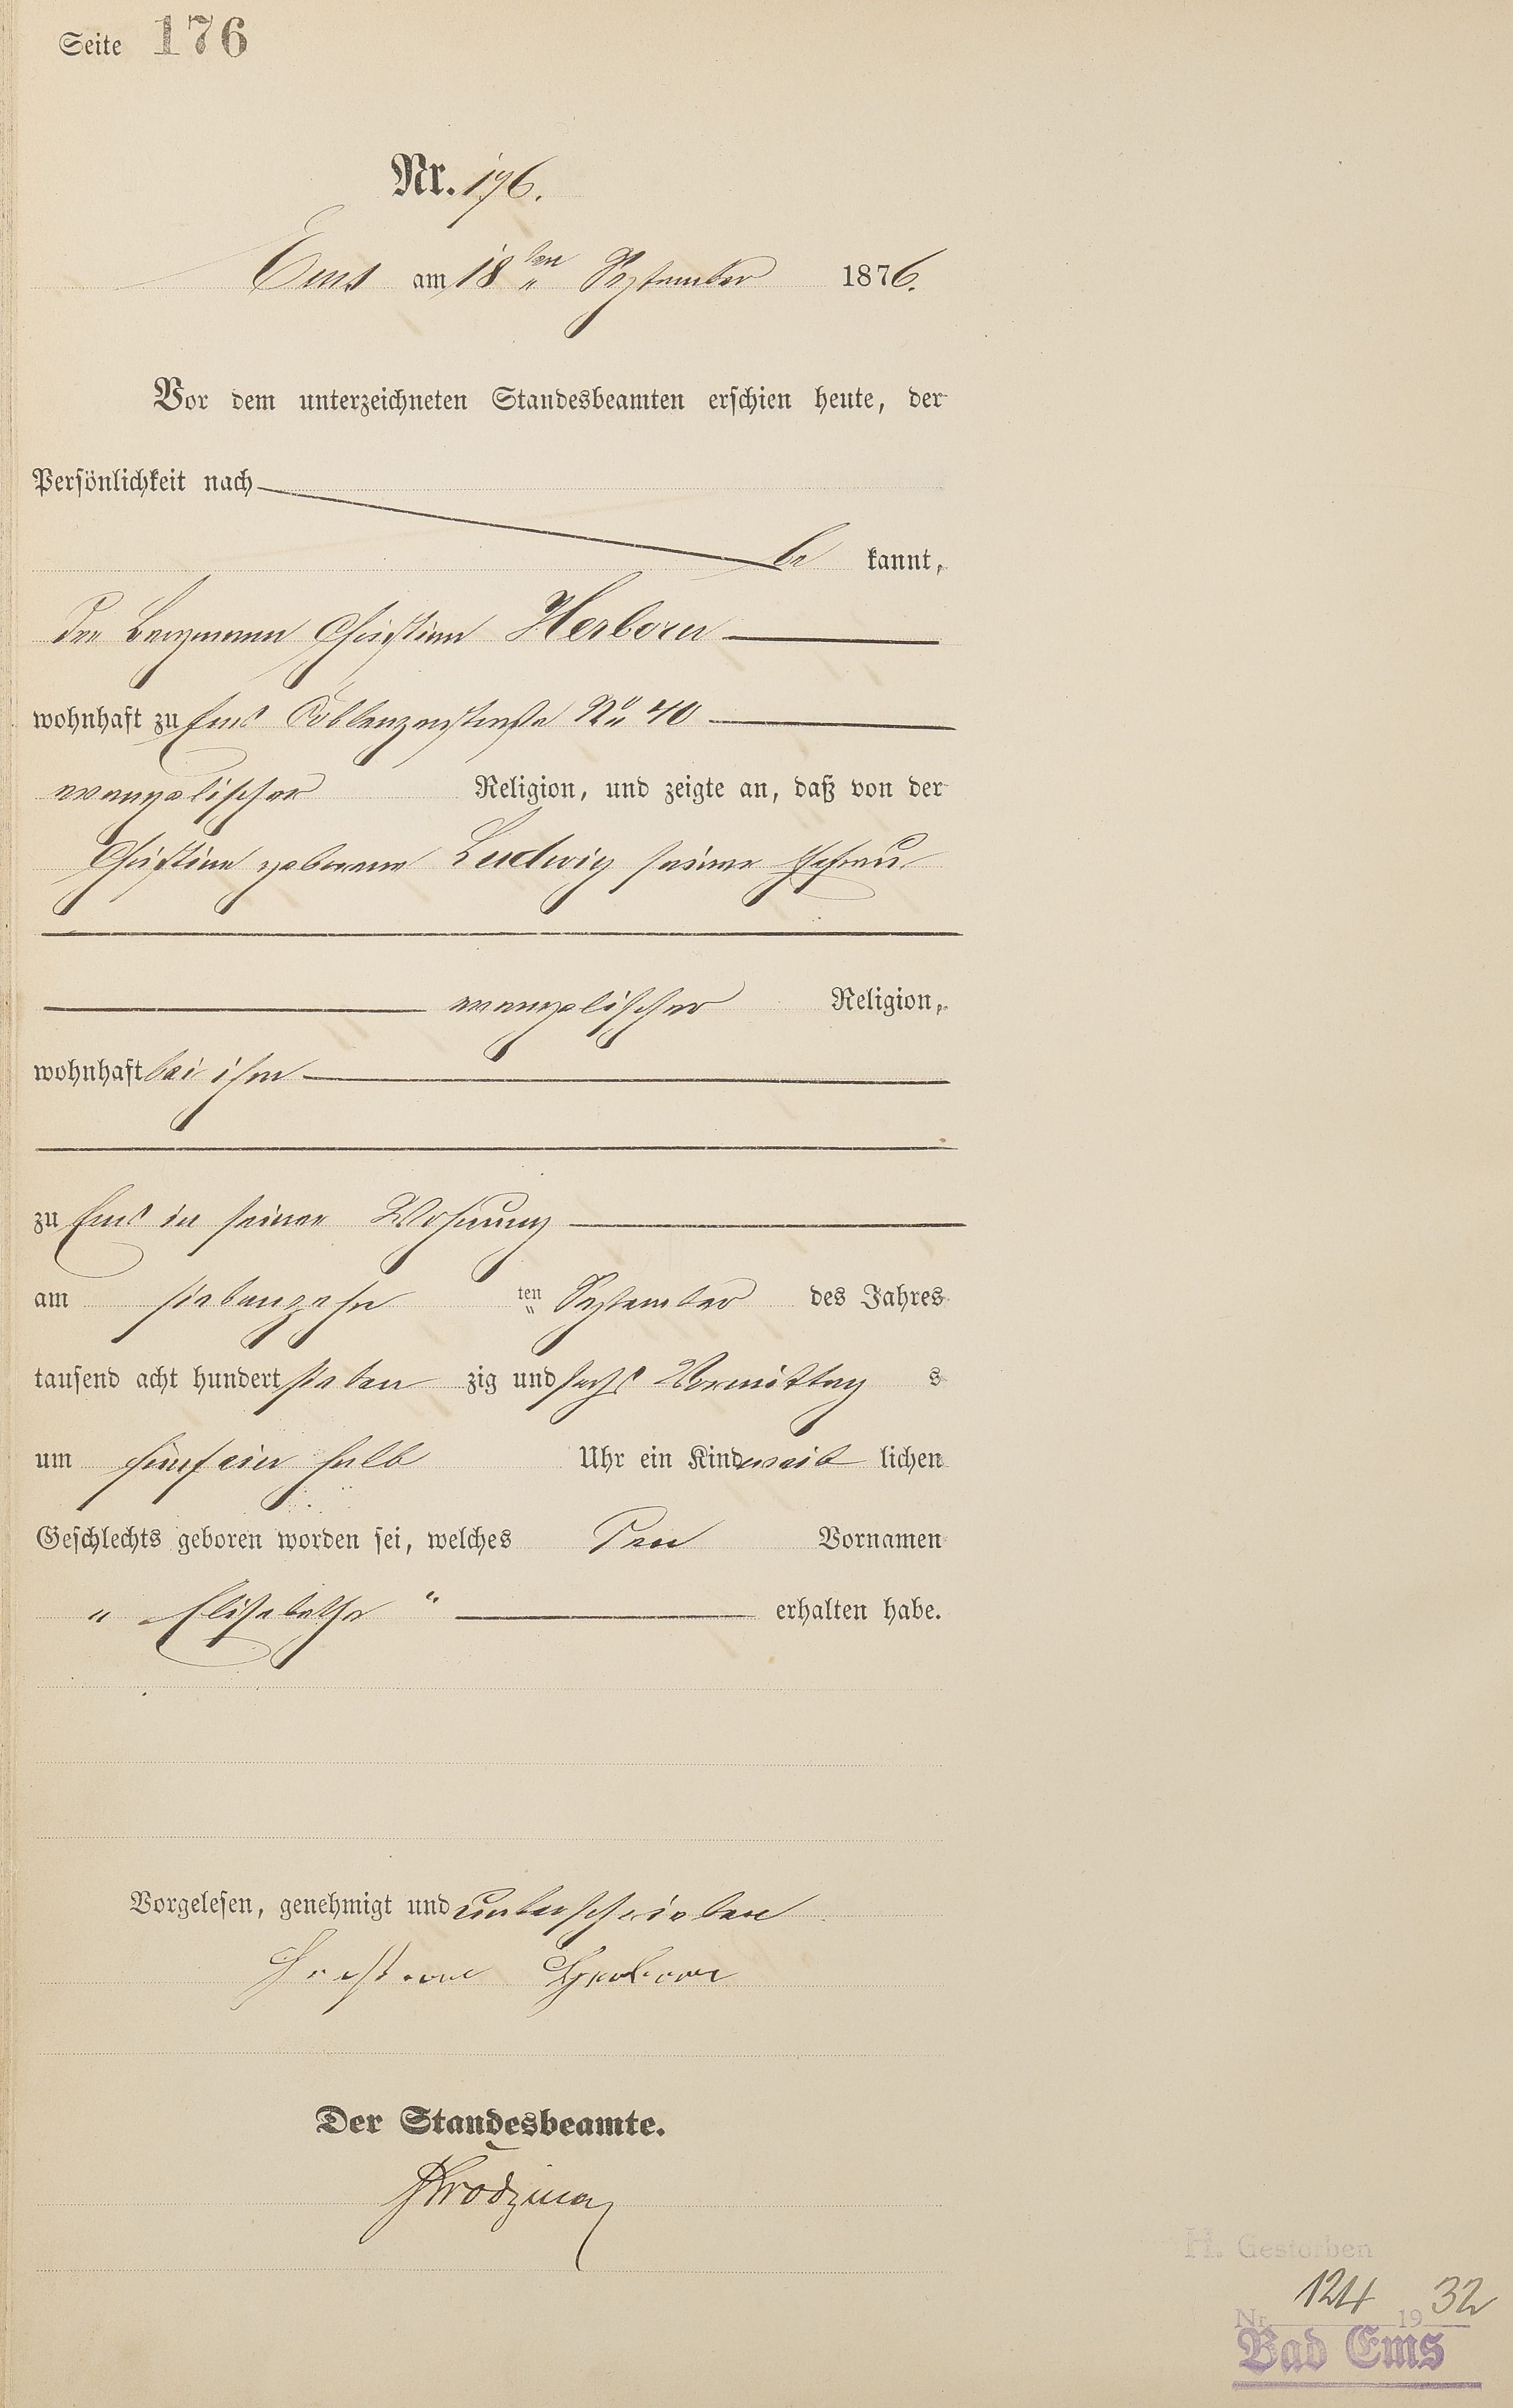 Seite 176
Nr. 176.
Ems am 18ten September 1876.
Vor dem unterzeichneten Standesbeamten erschien heute, der
Persönlichkeit nach
be kannt,
der Bergmann Christian Herborn
wohnhaft zu Ems Coblenzerstraße No 40
evangelischer Religion, und zeigte an, daß von der
Christine geborene Ludwig seiner Ehefrau
evangelischer Religion,
wohnhaft bei ihm
zu Ems in seiner Wohnung
am siebenzehn ten September des Jahres
tausend acht hundert sieben zig und sechs Vormittag s
um fünf ein halb Uhr ein Kind weib lichen
Geschlechts geboren worden sei, welches den Vornamen
" Elisabethe " erhalten habe.
Vorgelesen, genehmigt und unterschrieben
Herborn
Der Standesbeamte.
H. Gestorben
Nr. 124 1932
Bad Ems